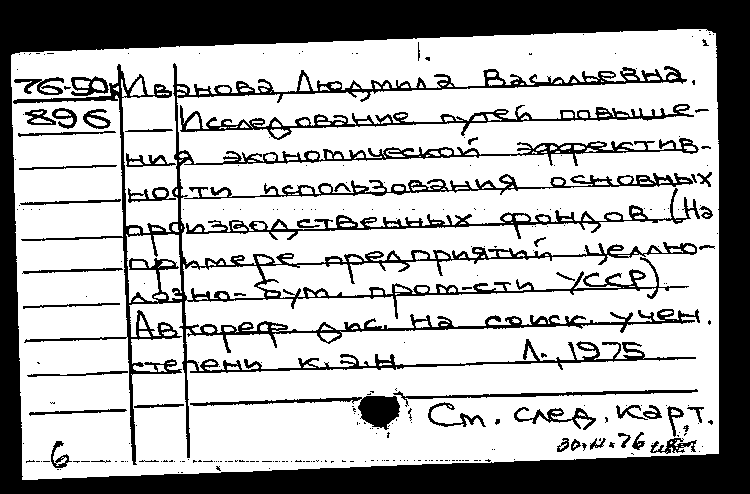 76-50к Иванова, Людмила Васильевна.
896 Исследование путей повыше-
ния экономической эффектив-
ности использования основных
производственных фондов. (На
примере предприятий целлю-
лозно-бум. пром-сти УССР).
Автореф. дис. на соиск. учен.
степени к.э.н. Л., 1975
См. след. карт.
6